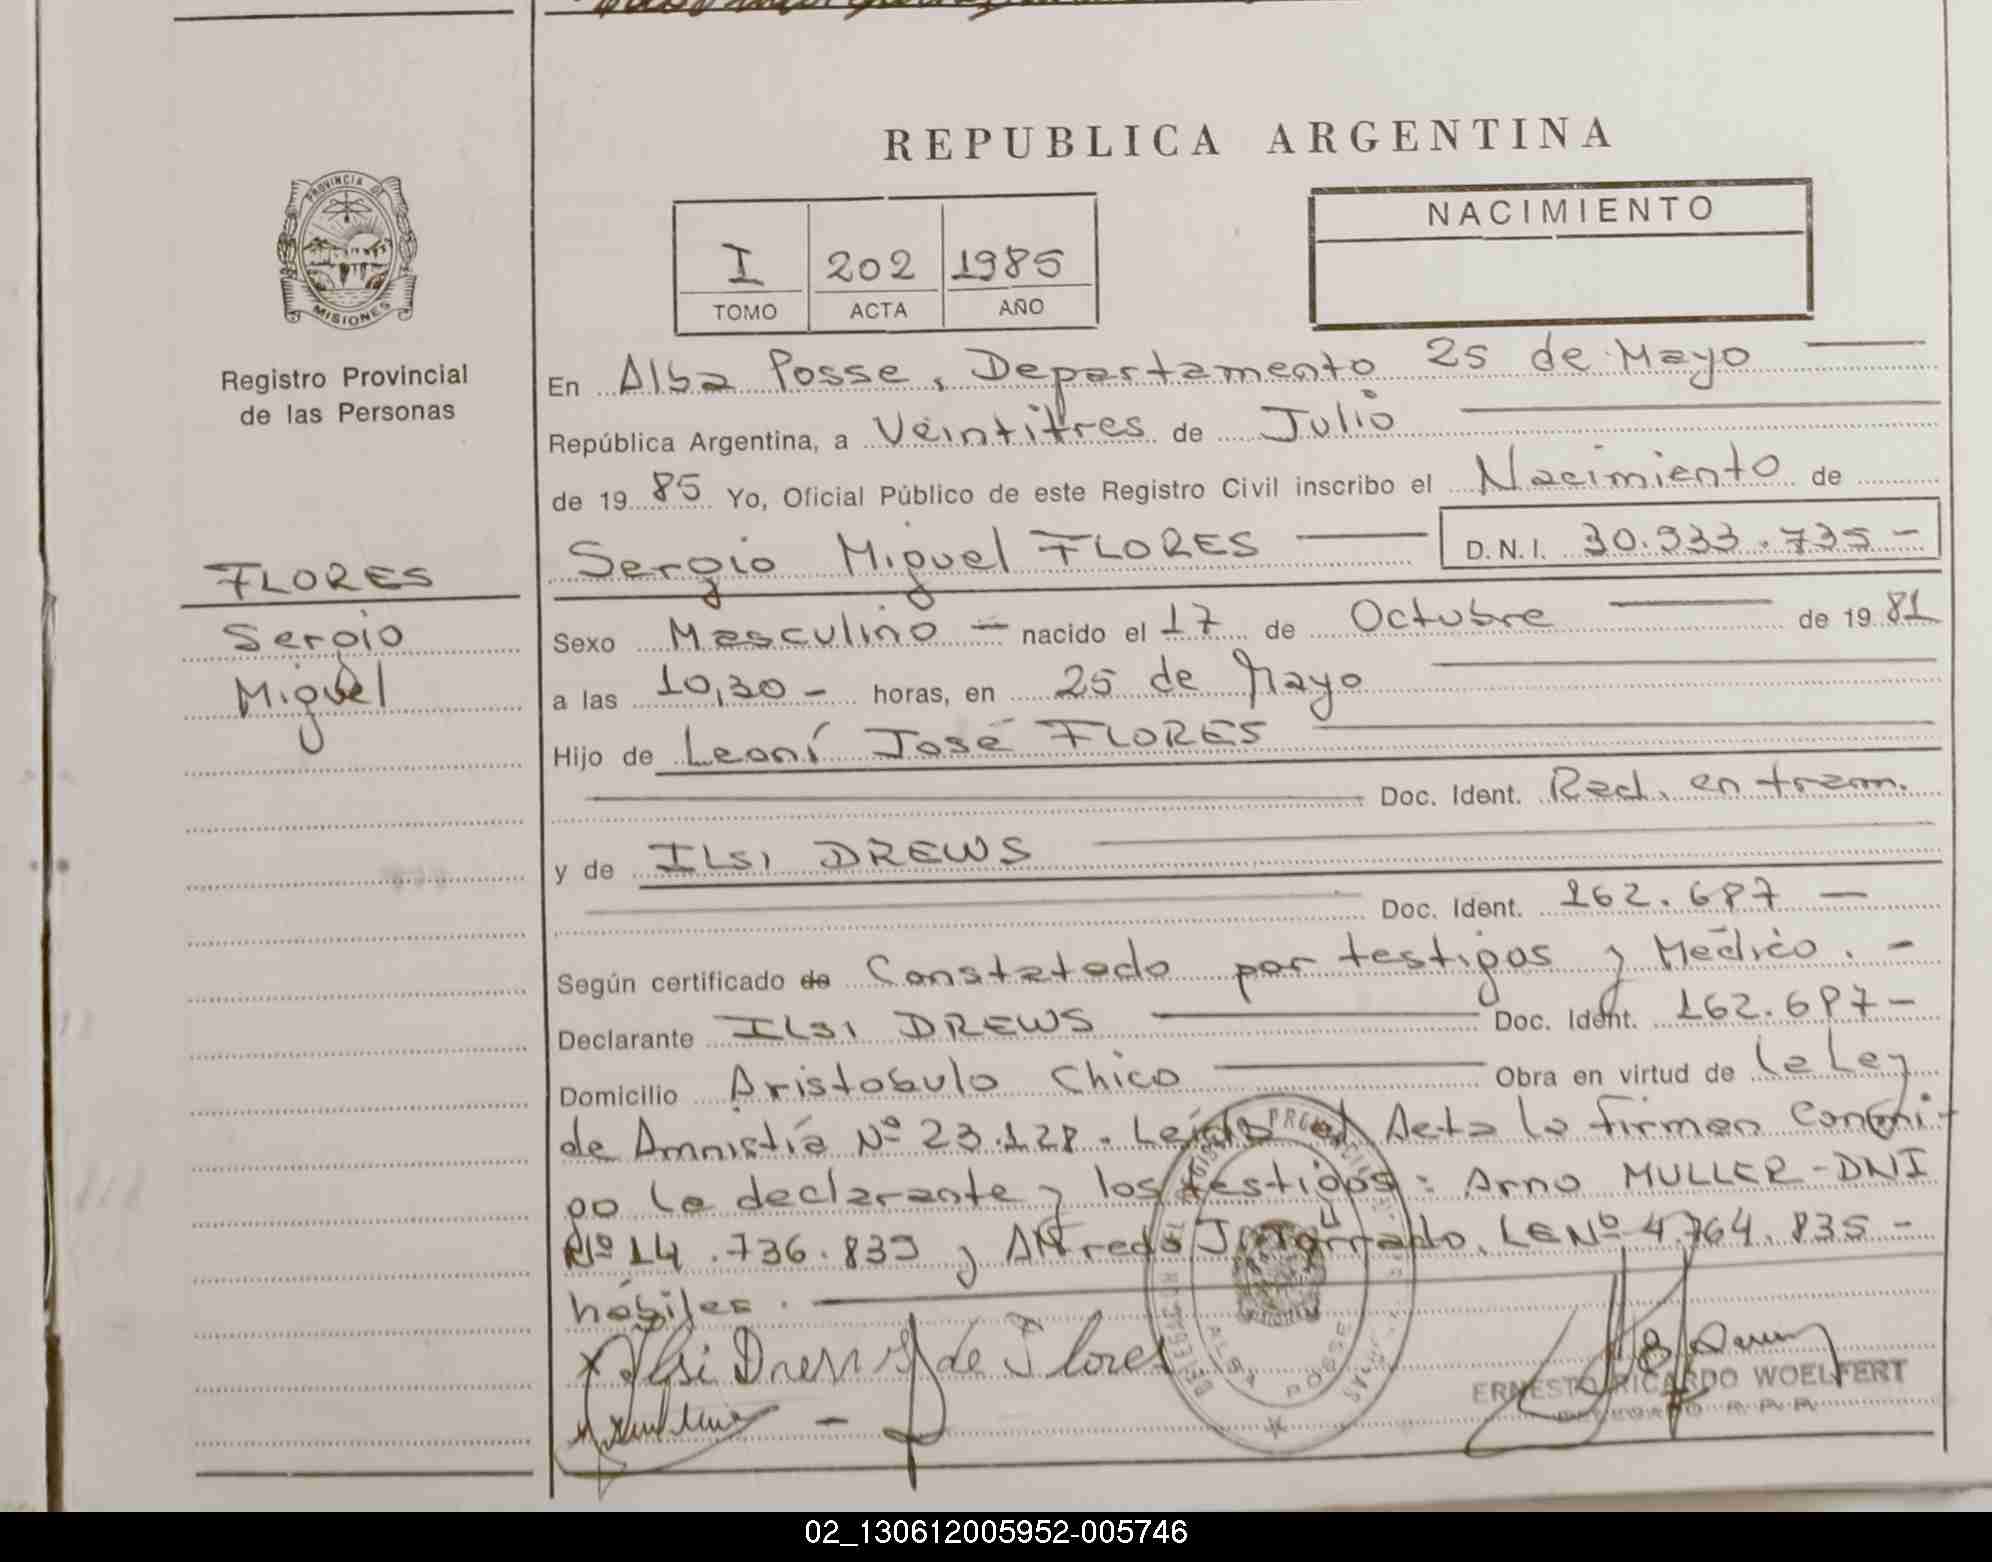 REPUBLICA ARGENTINA
PROVINCIA DE
MISIONES
Registro Provincial
de las Personas
I 202 1985
TOMO ACTA AÑO
NACIMIENTO
En Alba Posse, Departamento 25 de Mayo
República Argentina, a Veintitres de Julio
de 19 85 Yo, Oficial Público de este Registro Civil inscribo el Nacimiento de
Sergio Miguel FLORES D.N.I. 30.933.735-
FLORES
Sergio
Miguel
Sexo Masculino - nacido el 17 de Octubre de 19 81
a las 10,30 - horas, en 25 de Mayo
Hijo de Leoní José FLORES
Doc. Ident. Rad. en tram.
y de ILSI DREWS
Doc. Ident. 162.687 -
Según certificado de Constatado por testigos y Médico. -
Declarante ILSI DREWS Doc. Ident. 162.687-
Domicilio Aristobulo Chico Obra en virtud de la Ley
de Amnistía Nº 23.128. Leída el Acta la firman conmi-
go la declarante y los testigos: Arno MULLER - DNI
Nº 14.736.839 y Alfredo LE Nº 4.764.835 -
hábiles.
Ilsi Drews de Flores
ALBA POSSE
ERNESTO RICARDO WOELFERT
DELEGADO R.P.P.
02_130612005952-005746